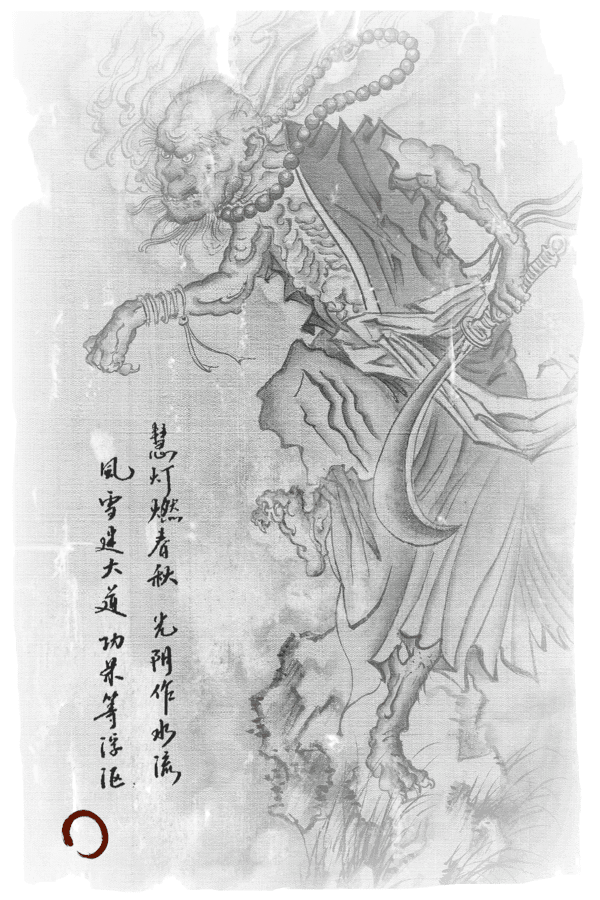 慧灯燃春秋 光阴作水流
風雪大道 功果等浮沤